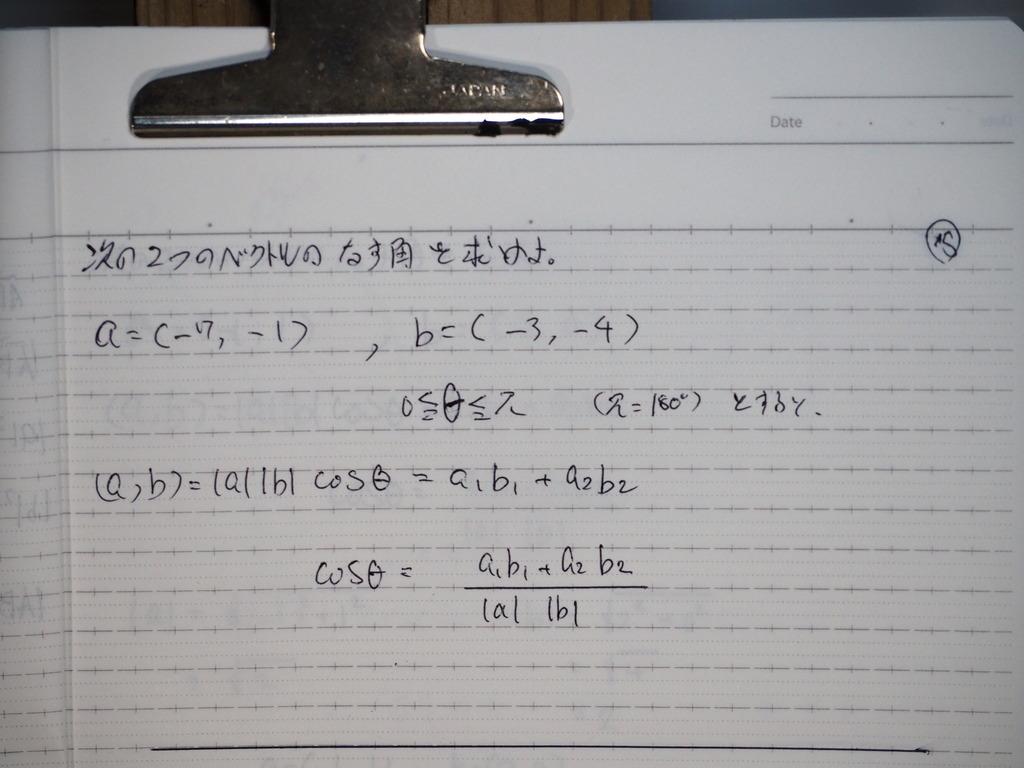 JAPAN
Date
次の2つのベクトルのなす角を求めよ。
a=(-7, -1) , b=(-3, -4)
0≦θ≦π (π=180°) とすると.
(a,b)=|a||b| cosθ = a₁b₁ + a₂b₂
cosθ = a₁b₁+a₂b₂
|a| |b|